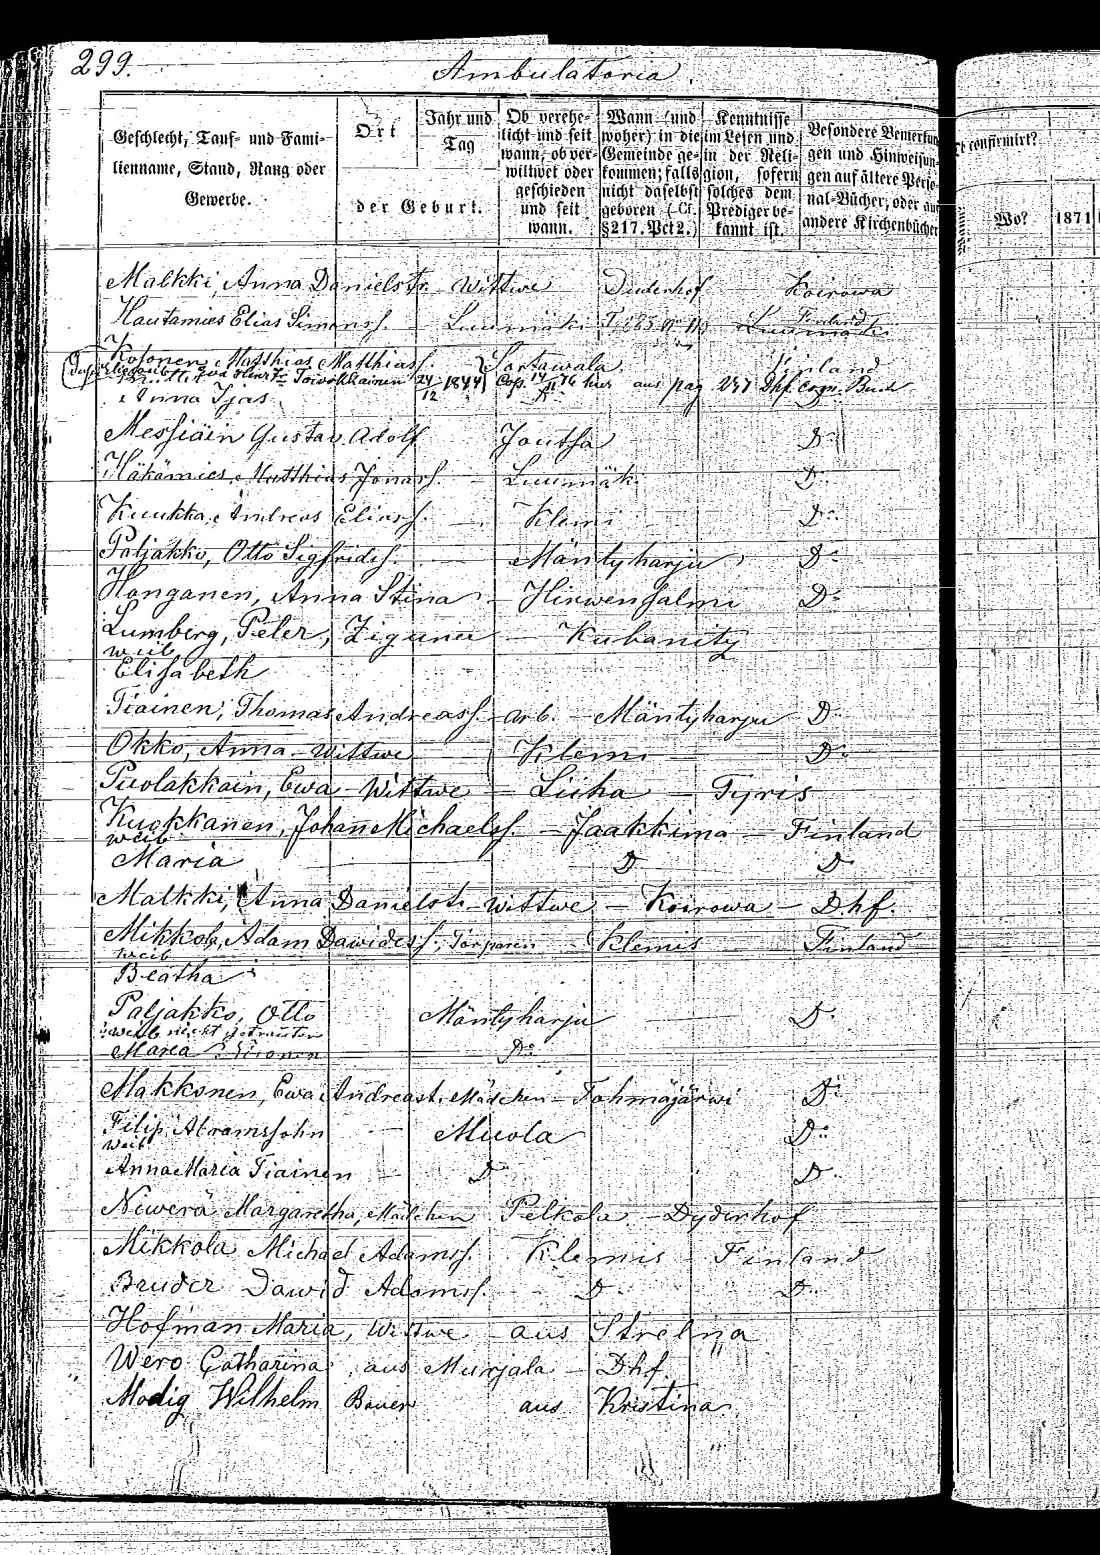 299.
Ambulatoria.
Geschlecht, Tauf- und Fami-
lienname, Stand, Rang oder
Gewerbe.
Ort
der Geburt.
Jahr und
Tag
Ob verehe-
licht und seit
wann, ob ver-
wittwet oder
geschieden
und seit
wann.
Wann (und
woher) in die
Gemeinde ge-
kommen; falls
nicht daselbst
geboren (Cf.
§ 217. Pct 2.)
Kenntnisse
im Lesen und
in der Reli-
gion, sofern
solches dem
Prediger be-
kannt ist.
Besondere Bemerkun
gen und Hinweisun-
gen auf ältere Perso-
nal-Bücher, oder auf
andere Kirchenbücher
confirmirt?
Wo?
1871
Malkki, Anna Danielstr. Wittwe Duderhof Koirowa
Hautamies Elias Simonss. - Luumäki Finland
Kolonen Matthias Matthiass. Sortawala Finland
24/12 1844 Cop. 76 hier aus pag 247 Dhf.
Anna Ijas D°
Messiäin Gustav Adolf Joutsa D°
Häkämies, Matthias Jonass. - Luumäki D°
Kuukka, Andreas Eliass. - Klemi D°
Paljakko, Otto Sigfrids. - Mäntyharju D°
Honganen, Anna Stina - Hirwensalmi D°
Lumberg, Peter, Zigeuner - Kubanitz
weib
Elisabeth
Tiainen, Thomas Andreass. - arb. - Mäntyharju D°
Okko, Anna - Wittwe Klemi - D°
Puolakkain, Ewa - Wittwe - Liiha - Tyris
Kuokkanen, Johann Michaelss. - Jaakkima - Finland
weib
Maria D° D°
Malkki, Anna Danielstr. - Wittwe - Koirowa - Dhf.
Mikkola, Adam Dawidss., Torparen - Klemis Finland
weib
Beatha
Paljakko, Otto Mäntyharju D°
weib nicht getrauten
Maria D°
Makkonen, Ewa Andreast. Mädchen - Tohmäjärwi D°
Filip Abramssohn - Muola D°
weib
Anna Maria Tiainen - D° D°
Niwerä Margaretha, Mädchen Pelkola - Dyderhof
Mikkola Michael Adamss. Klemis - Finland
Bruder Dawid Adamss. - D° D°
Hofman Maria, Wittwe aus Strelna
Wero Catharina, aus Murjala - Dhf.
Modig Wilhelm Bauer aus Kristina